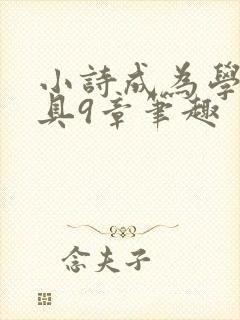 小詩成為學
具9章筆趣
念夫子